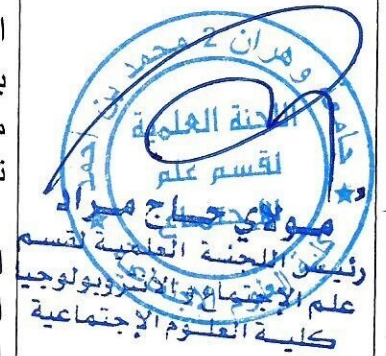 جامعة وهران 2 محمد بن احمد
اللجنة العلمية
لقسم علم
مولاي حساج مراد
رئيس اللجنة العلمية لقسم
علم الإجتماع والأنثروبولوجيا
كلية العلوم الإجتماعية